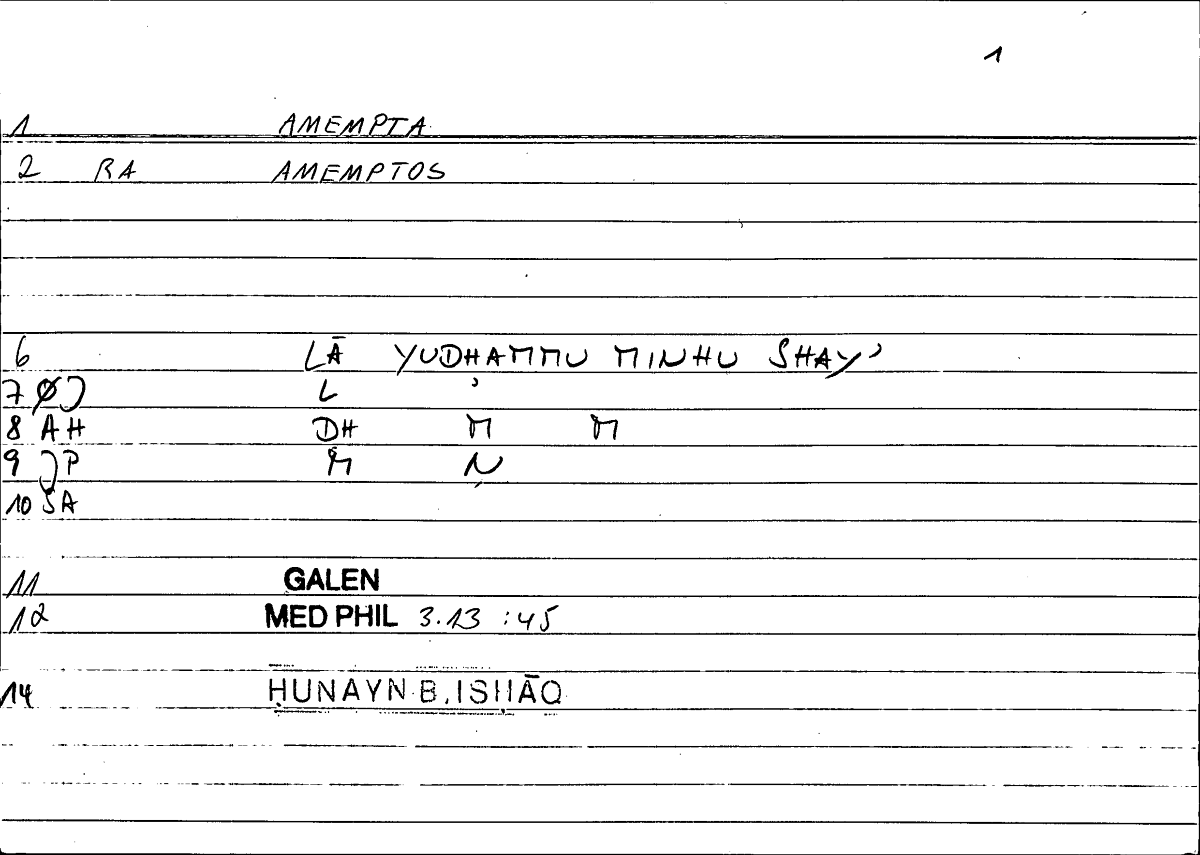 1
1 AMEMPTA
2 RA AMEMPTOS
6 LĀ YUDHAMMU MINHU SHAY'
7 L '
8 AH DH M M
9 JP M N
10 SA
11 GALEN
12 MED PHIL 3.13 :45
14 ḤUNAYN B. ISḤĀQ